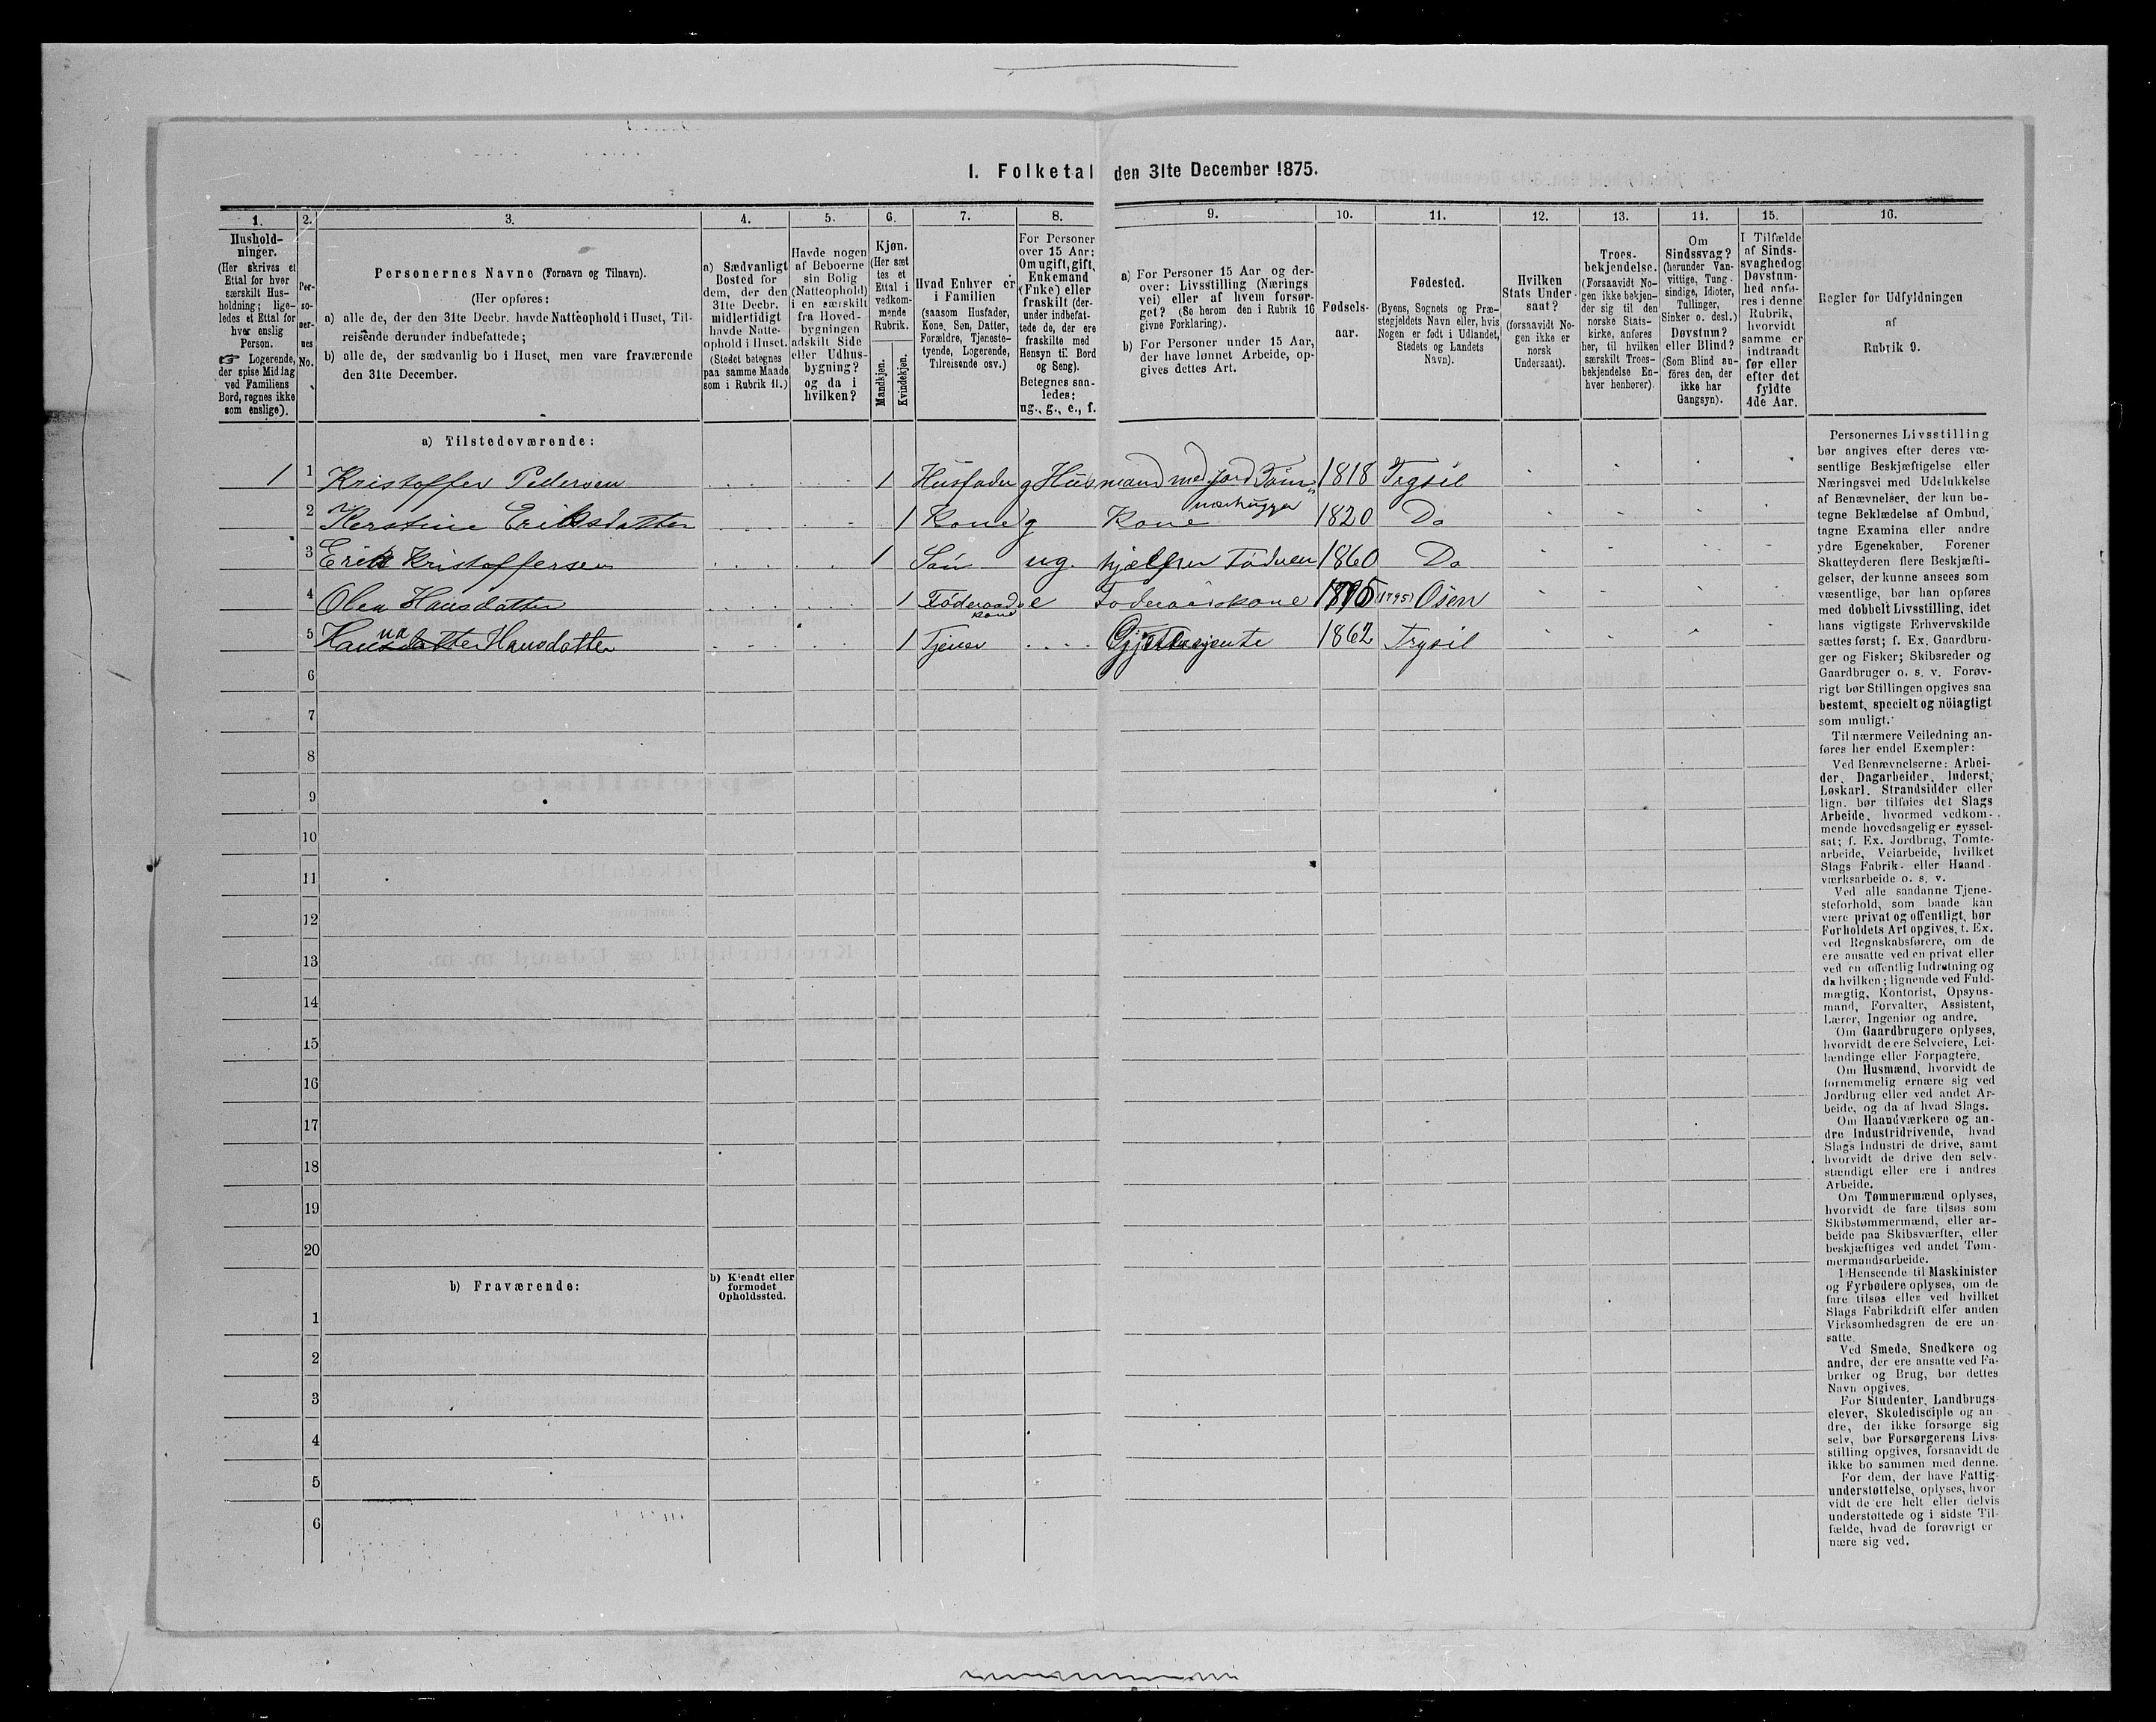 I. Folketal den 31te December 1875.
1. 2. 3. 4. 5. 6. 7. 8. 9. 10. 11. 12. 13. 14. 15. 16.
Hushold-
ninger.
(Her skrives et
Ettal for hver
særskilt Hus-
holdning; lige-
ledes et Ettal for
hver enslig
Person.
☞ Logerende,
der spise Middag
ved Familiens
Bord, regnes ikke
som enslige).
Per-
so-
ner-
nes
No.
Personernes Navne (Fornavn og Tilnavn).
(Her opføres:
a) alle de, der den 31te Decbr. havde Natteophold i Huset, Til-
reisende derunder indbefattede;
b) alle de, der sædvanlig bo i Huset, men vare fraværende
den 31te December.
a) Sædvanligt
Bosted for
dem, der den
31te Decbr.
midlertidigt
havde Natte-
ophold i Huset.
(Stedet betegnes
paa samme Maade
som i Rubrik 11.)
Havde nogen
af Beboerne
sin Bolig
(Natteophold)
i en særskilt
fra Hoved-
bygningen
adskilt Side
eller Udhus-
bygning?
og da i
hvilken?
Kjøn.
(Her sæt
tes et
Ettal i
vedkom-
mende
Rubrik.
Mandkjøn.
Kvindekjøn.
Hvad Enhver er
i Familien
(saasom Husfader,
Kone, Søn, Datter,
Forældre, Tjeneste-
tyende, Logerende,
Tilreisende osv.)
For Personer
over 15 Aar:
Om ugift, gift,
Enkemand
(Enke) eller
fraskilt (der-
under indbefat-
tede de, der ere
fraskilte med
Hensyn til Bord
og Seng).
Betegnes saa-
ledes:
ug., g., e., f.
a) For Personer 15 Aar og der-
over: Livsstilling (Nærings
vei) eller af hvem forsør-
get? (Se herom den i Rubrik 16
givne Forklaring).
b) For Personer under 15 Aar,
der have lønnet Arbeide, op-
gives dettes Art.
Fødsels-
aar.
Fødested.
(Byens, Sognets og Præ-
stegjeldets Navn eller, hvis
Nogen er født i Udlandet,
Stedets og Landets
Navn).
Hvilken
Stats Under-
saat?
(forsaavidt No-
gen ikke er
norsk
Undersaat).
Troes-
bekjendelse.
(Forsaavidt No-
gen ikke bekjen-
der sig til den
norske Stats-
kirke, anføres
her, til hvilken
særskilt Troes-
bekjendelse En-
hver henhører).
Om
Sindssvag?
(herunder Van-
vittige, Tung-
sindige, Idioter,
Tullinger,
Sinker o. desl.)
Døvstum?
eller Blind?
(Som Blind an-
föres den, der
ikke har
Gangsyn).
I Tilfælde
af Sinds-
svaghed og
Døvstum-
hed anfø-
res i denne
Rubrik,
hvorvidt
samme er
indtraadt
før eller
efter det
fyldte
4de Aar.
Regler for Udfyldningen
af
Rubrik 9.
a) Tilstedeværende:
1 1 Kristoffer Pedersen 1 Husfader g Husmand med Jord Töm-
merhugger 1818 Trysil
2 Kerstine Eriksdatter 1 Kone g Kone 1820 Do
3 Erik Kristoffersen 1 Sön ug. hjælper Föderen 1860 Do
4 Olea Hansdatter 1 Föderaads
kone e Foderaadskone 1795 (1795) Osen
5 Hanna Hansdatter 1 Tjener Gjetterjente 1862 Trysil
6
7
8
9
10
11
12
13
14
15
16
17
18
19
20
b) Fraværende:
b) Kjendt eller
formodet
Opholdssted.
1
2
3
4
5
6
Personernes Livsstilling
bør angives efter deres væ-
sentlige Beskjæftigelse eller
Næringsvei med Udelukkelse
af Benævnelser, der kun be-
tegne Beklædelse af Ombud,
tagne Examina eller andre
ydre Egenskaber. Forener
Skatteyderen flere Beskjæfti-
gelser, der kunne ansees som
væsentlige, bør han opføres
med dobbelt Livsstilling, idet
hans vigtigste Erhvervskilde
sættes først; f. Ex. Gaardbru-
ger og Fisker; Skibsreder og
Gaardbruger o. s. v. Forøv-
rigt bør Stillingen opgives saa
bestemt, specielt og nöiagtigt
som muligt.
Til nærmere Veiledning an-
føres her endel Exempler:
Ved Benævnelserne: Arbei-
der, Dagarbeider, Inderst,
Løskarl, Strandsidder eller
lign. bør tilføies det Slags
Arbeide, hvormed vedkom-
mende hovedsagelig er syssel-
sat; f. Ex. Jordbrug, Tomte-
arbeide, Veiarbeide, hvilket
Slags Fabrik- eller Haand-
værksarbeide o. s. v.
Ved alle saadanne Tjene-
steforhold, som baade kan
være privat og offentligt, bør
Forholdets Art opgives, t. Ex.
ved Regnskabsførere, om de
ere ansatte ved en privat eller
ved en offentlig Indretning og
da hvilken; lignende ved Fuld-
mægtig, Kontorist, Opsyns-
mand, Forvalter, Assistent,
Lærer, Ingeniør og andre.
Om Gaardbrugere oplyses,
hvorvidt de ere Selveiere, Lei-
lændinge eller Forpagtere.
Om Husmænd, hvorvidt de
fornemmelig ernære sig ved
Jordbrug eller ved andet Ar-
beide, og da af hvad Slags.
Om Haandværkere og an-
dre Industridrivende, hvad
Slags Industri de drive, samt
hvorvidt de drive den selv-
stændigt eller ere i andres
Arbeide.
Om Tømmermænd oplyses,
hvorvidt de fare tilsøs som
Skibstømmermænd, eller ar-
beide paa Skibsværfter, eller
beskjæftiges ved andet Tøm-
mermandsarbeide.
I Henseende til Maskinister
og Fyrbødere oplyses, om de
fare tilsøs eller ved hvilket
Slags Fabrikdrift eller anden
Virksomhedsgren de ere an-
satte.
Ved Smede, Snedkere og
andre, der ere ansatte ved Fa-
briker og Brug, bør dettes
Navn opgives.
For Studenter, Landbrugs-
elever, Skoledisciple og an-
dre, der ikke forsørge sig
selv, bør Forsørgerens Livs-
stilling opgives, forsaavidt de
ikke bo sammen med denne.
For dem, der have Fattig-
understøttelse, oplyses, hvor
vidt de ere helt eller delvis
understøttede og i sidste Til-
fælde, hvad de forøvrigt er
nære sig ved.